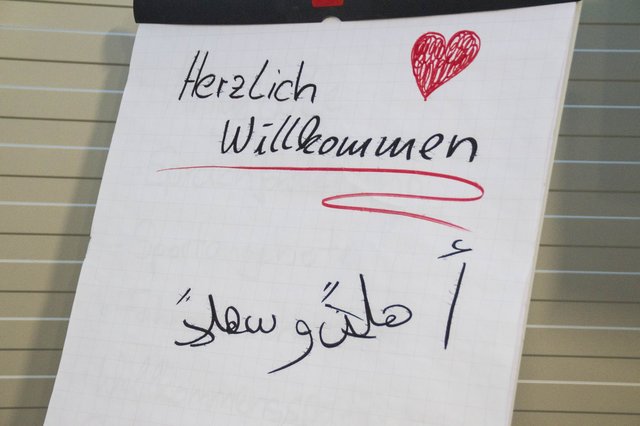 Herzlich
Willkommen
أهلاً وسهلاً